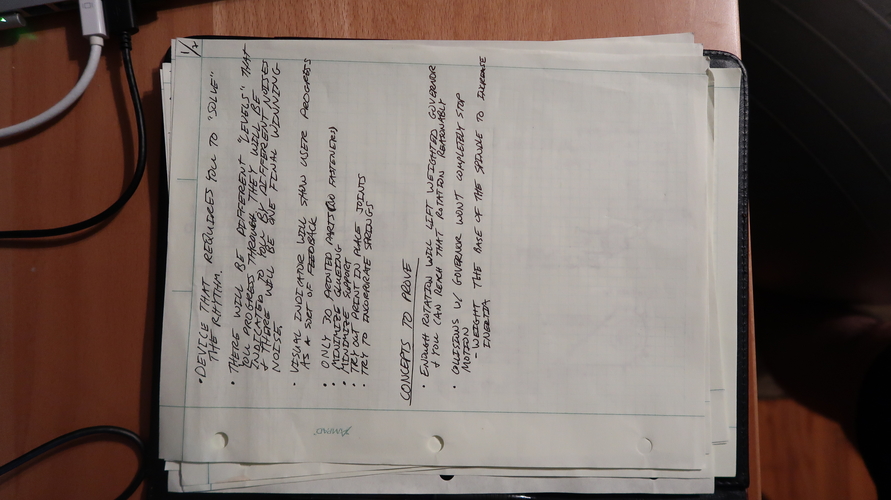 1/2
• DEVICE THAT REQUIRES YOU TO "SOLVE"
THE RHYTHM.
• THERE WILL BE DIFFERENT "LEVELS" THAT
YOU PROGRESS THROUGH. THEY WILL BE
INDICATED TO YOU BY DIFFERENT NOISES
& THERE WILL BE ONE FINAL WINNING
NOISE.
• VISUAL INDICATOR WILL SHOW USER PROGRESS
AS A SORT OF FEEDBACK
• ONLY 3D PRINTED PARTS (NO FASTENERS)
• MINIMIZE GLUEING
• MINIMIZE SUPPORT
• TRY OUT PRINT IN PLACE JOINTS
• TRY TO INCORPORATE SPRINGS
CONCEPTS TO PROVE
• ENOUGH ROTATION WILL LIFT WEIGHTED GOVERNOR
& YOU CAN REACH THAT ROTATION REASONABLY
• COLLISIONS W/ GOVERNOR WON'T COMPLETELY STOP
MOTION
- WEIGHT THE BASE OF THE SPINDLE TO INCREASE
INERTIA
"AMPAD"